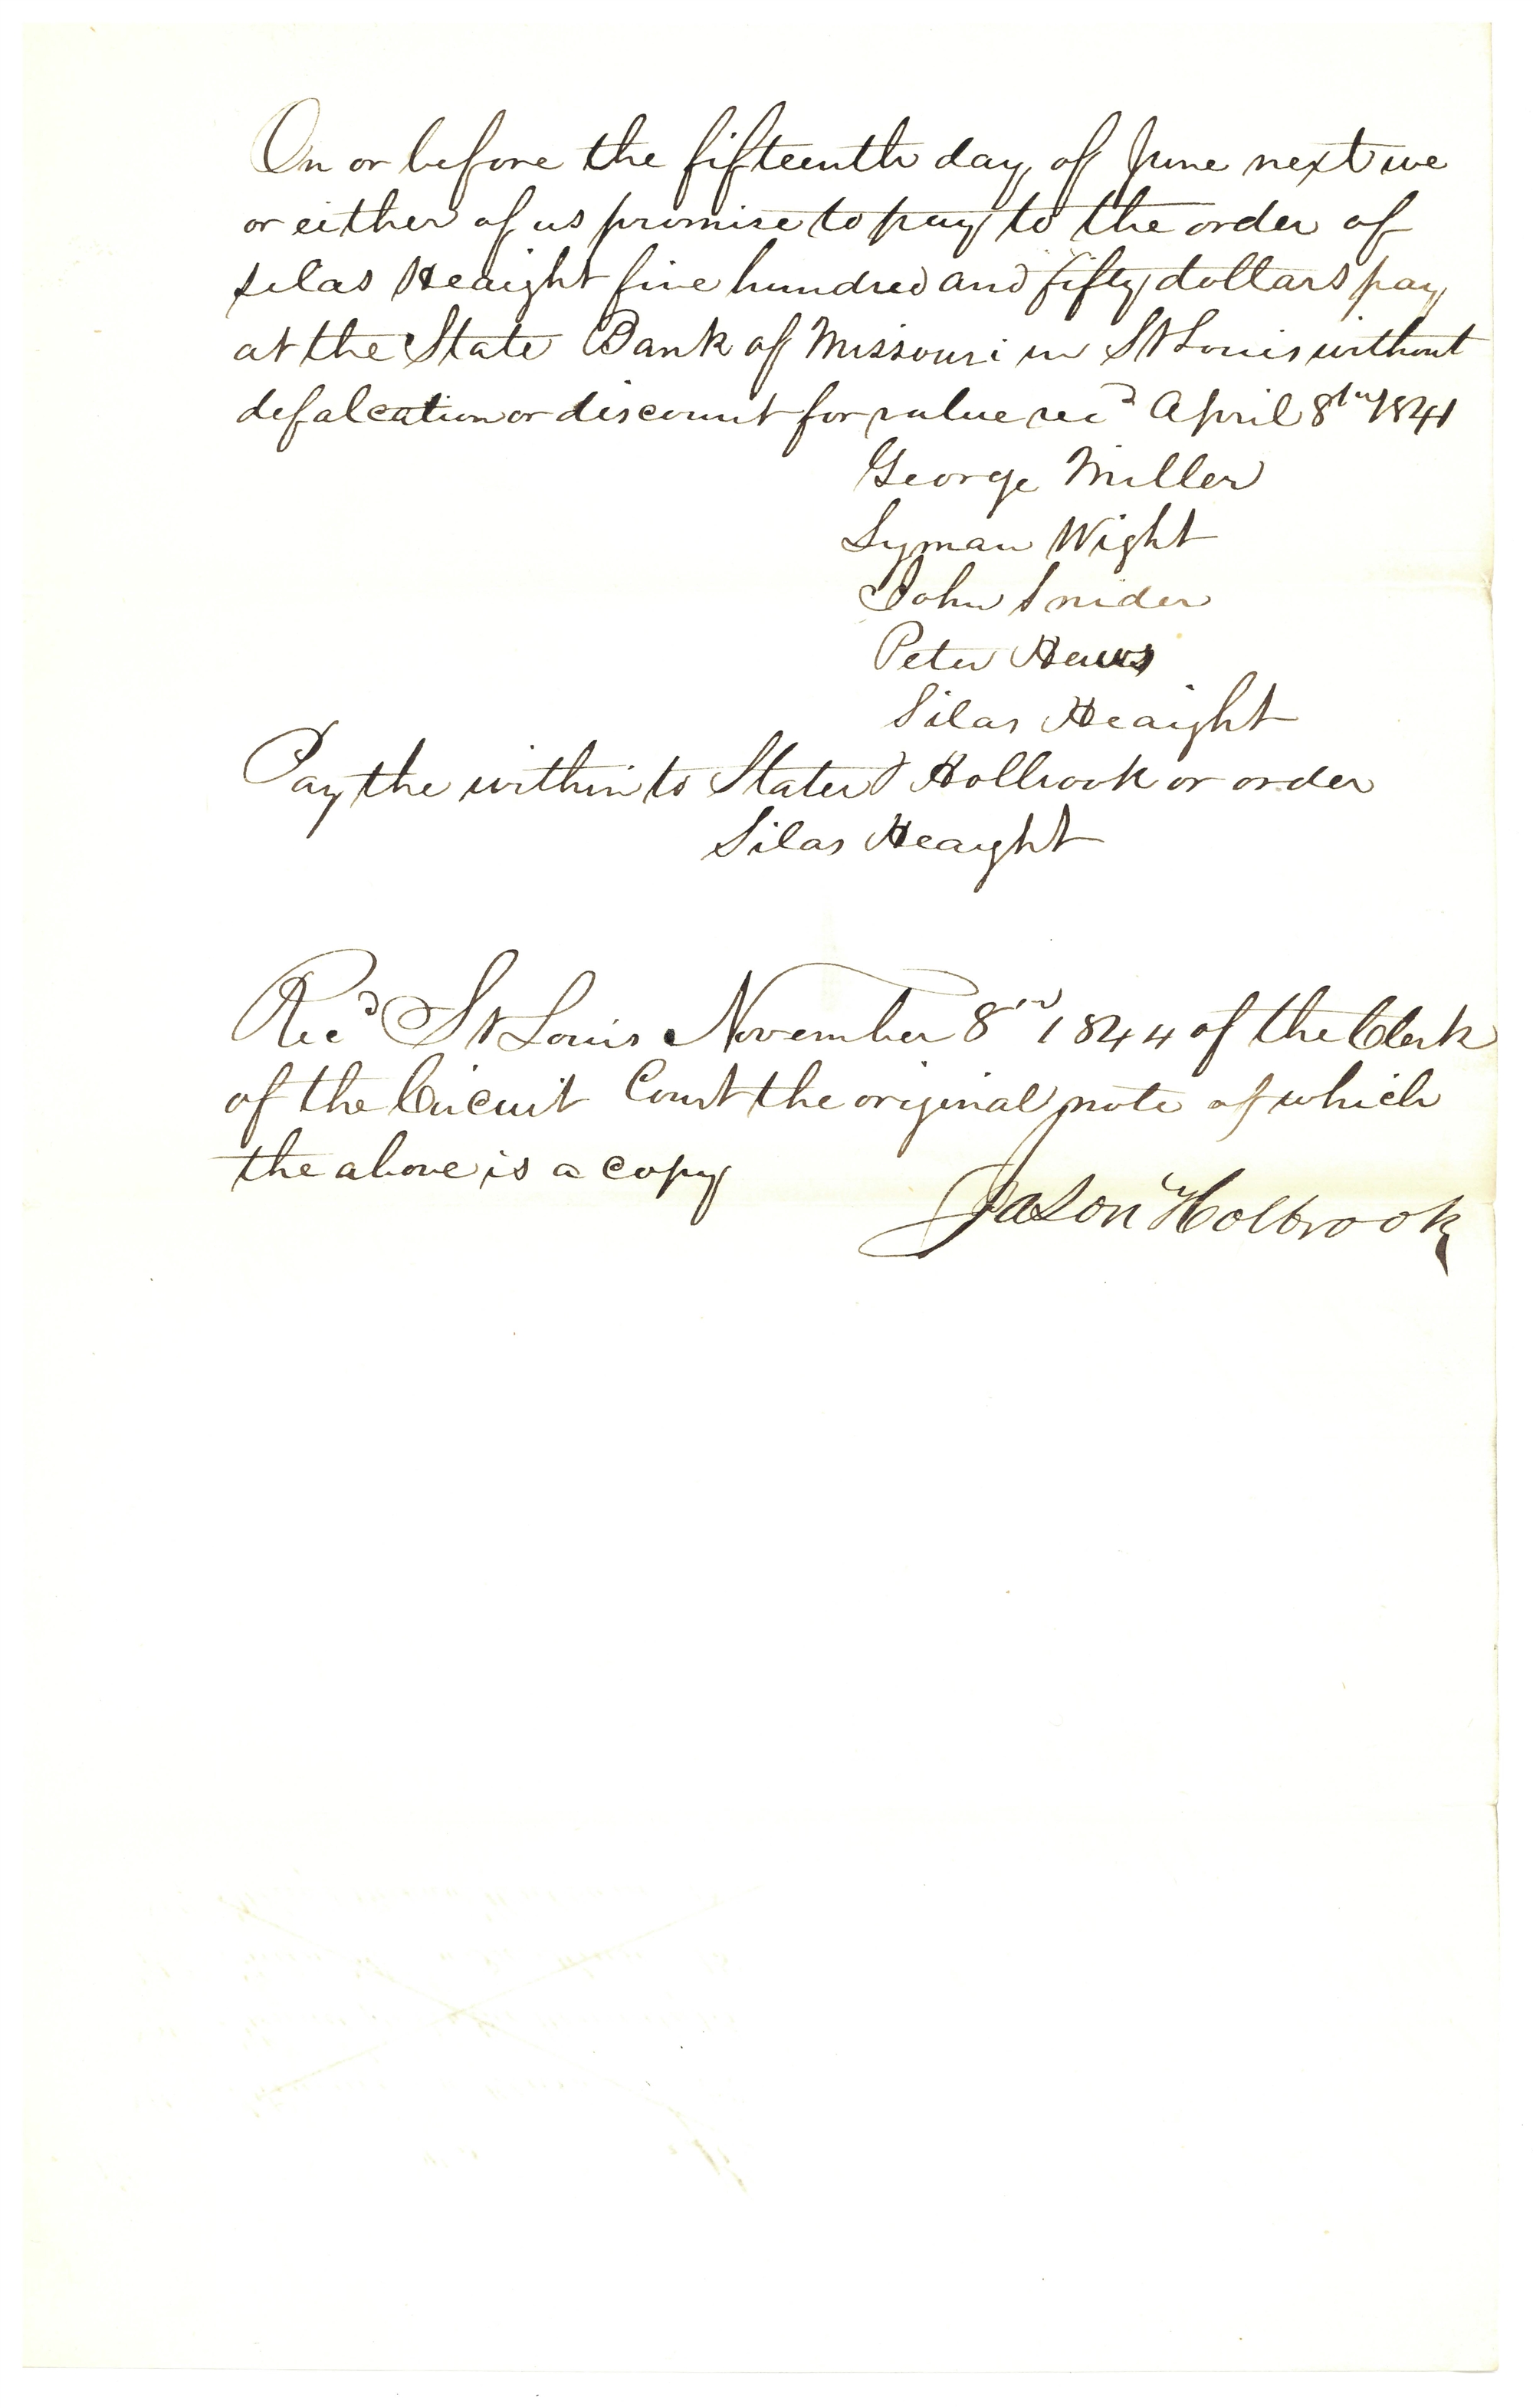 On or before the fifteenth day of June next we
or either of us promise to pay to the order of
Silas Heaight five hundred and fifty dollars pay
at the State Bank of Missouri in St Louis without
defalcation or discount for value recd April 8th 1841
George Miller
Lyman Wight
John Snider
Peter Haws
Silas Heaight
Pay the within to Slater & Holbrook or order
Silas Heaight
Recd St Louis November 8th 1844 of the Clerk
of the Circuit Court the original note of which
the above is a copy
Jason Holbrook